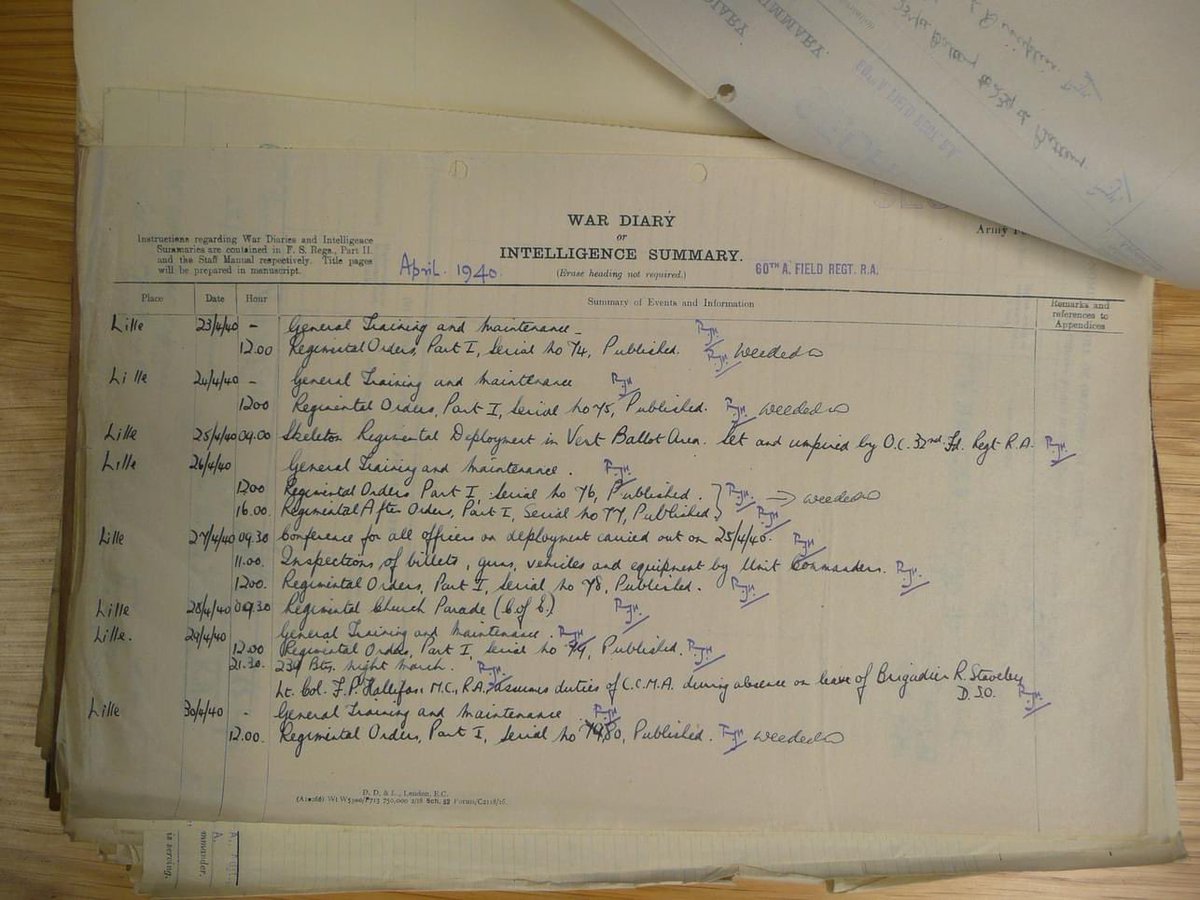 WAR DIARY
or
INTELLIGENCE SUMMARY.
(Erase heading not required.)
Instructions regarding War Diaries and Intelligence
Summaries are contained in F. S. Regs., Part II.
and the Staff Manual respectively. Title pages
will be prepared in manuscript.
April. 1940.
60TH A. FIELD REGT. R.A.
Army
Place Date Hour Summary of Events and Information Remarks and references to Appendices
Lille 23/4/40 - General Training and Maintenance -
12.00 Regimental Orders, Part I, Serial No 74, Published. Weeded
Lille 24/4/40 - General Training and Maintenance
1200 Regimental Orders, Part I, Serial No 75, Published. Weeded
Lille 25/4/40 09.00 Skeleton Regimental Deployment in Vert Ballot Area. Set and umpired by O.C. 32nd Fd. Regt R.A.
Lille 26/4/40 General Training and Maintenance.
1200 Regimental Orders Part I, Serial No 76, Published. Weeded
16.00 Regimental After Orders, Part I, Serial No 77, Published
Lille 27/4/40 09.30 Conference for all officers on deployment carried out on 25/4/40.
11.00. Inspections of billets, guns, vehicles and equipment by Unit Commanders.
1200. Regimental Orders, Part I, Serial No 78, Published.
Lille 28/4/40 09.30 Regimental Church Parade (C of E.)
Lille. 29/4/40 General Training and Maintenance.
12.00 Regimental Orders, Part I, Serial No 79, Published.
21.30. 239 Bty. Night March.
Lt. Col. F.P. Hallifax M.C., R.A. assumes duties of C.C.M.A. during absence on leave of Brigadier R. Staveley
D.S.O.
Lille 30/4/40 - General Training and Maintenance
12.00. Regimental Orders, Part I, Serial No 80, Published. Weeded
D. D. & L., London, E.C.